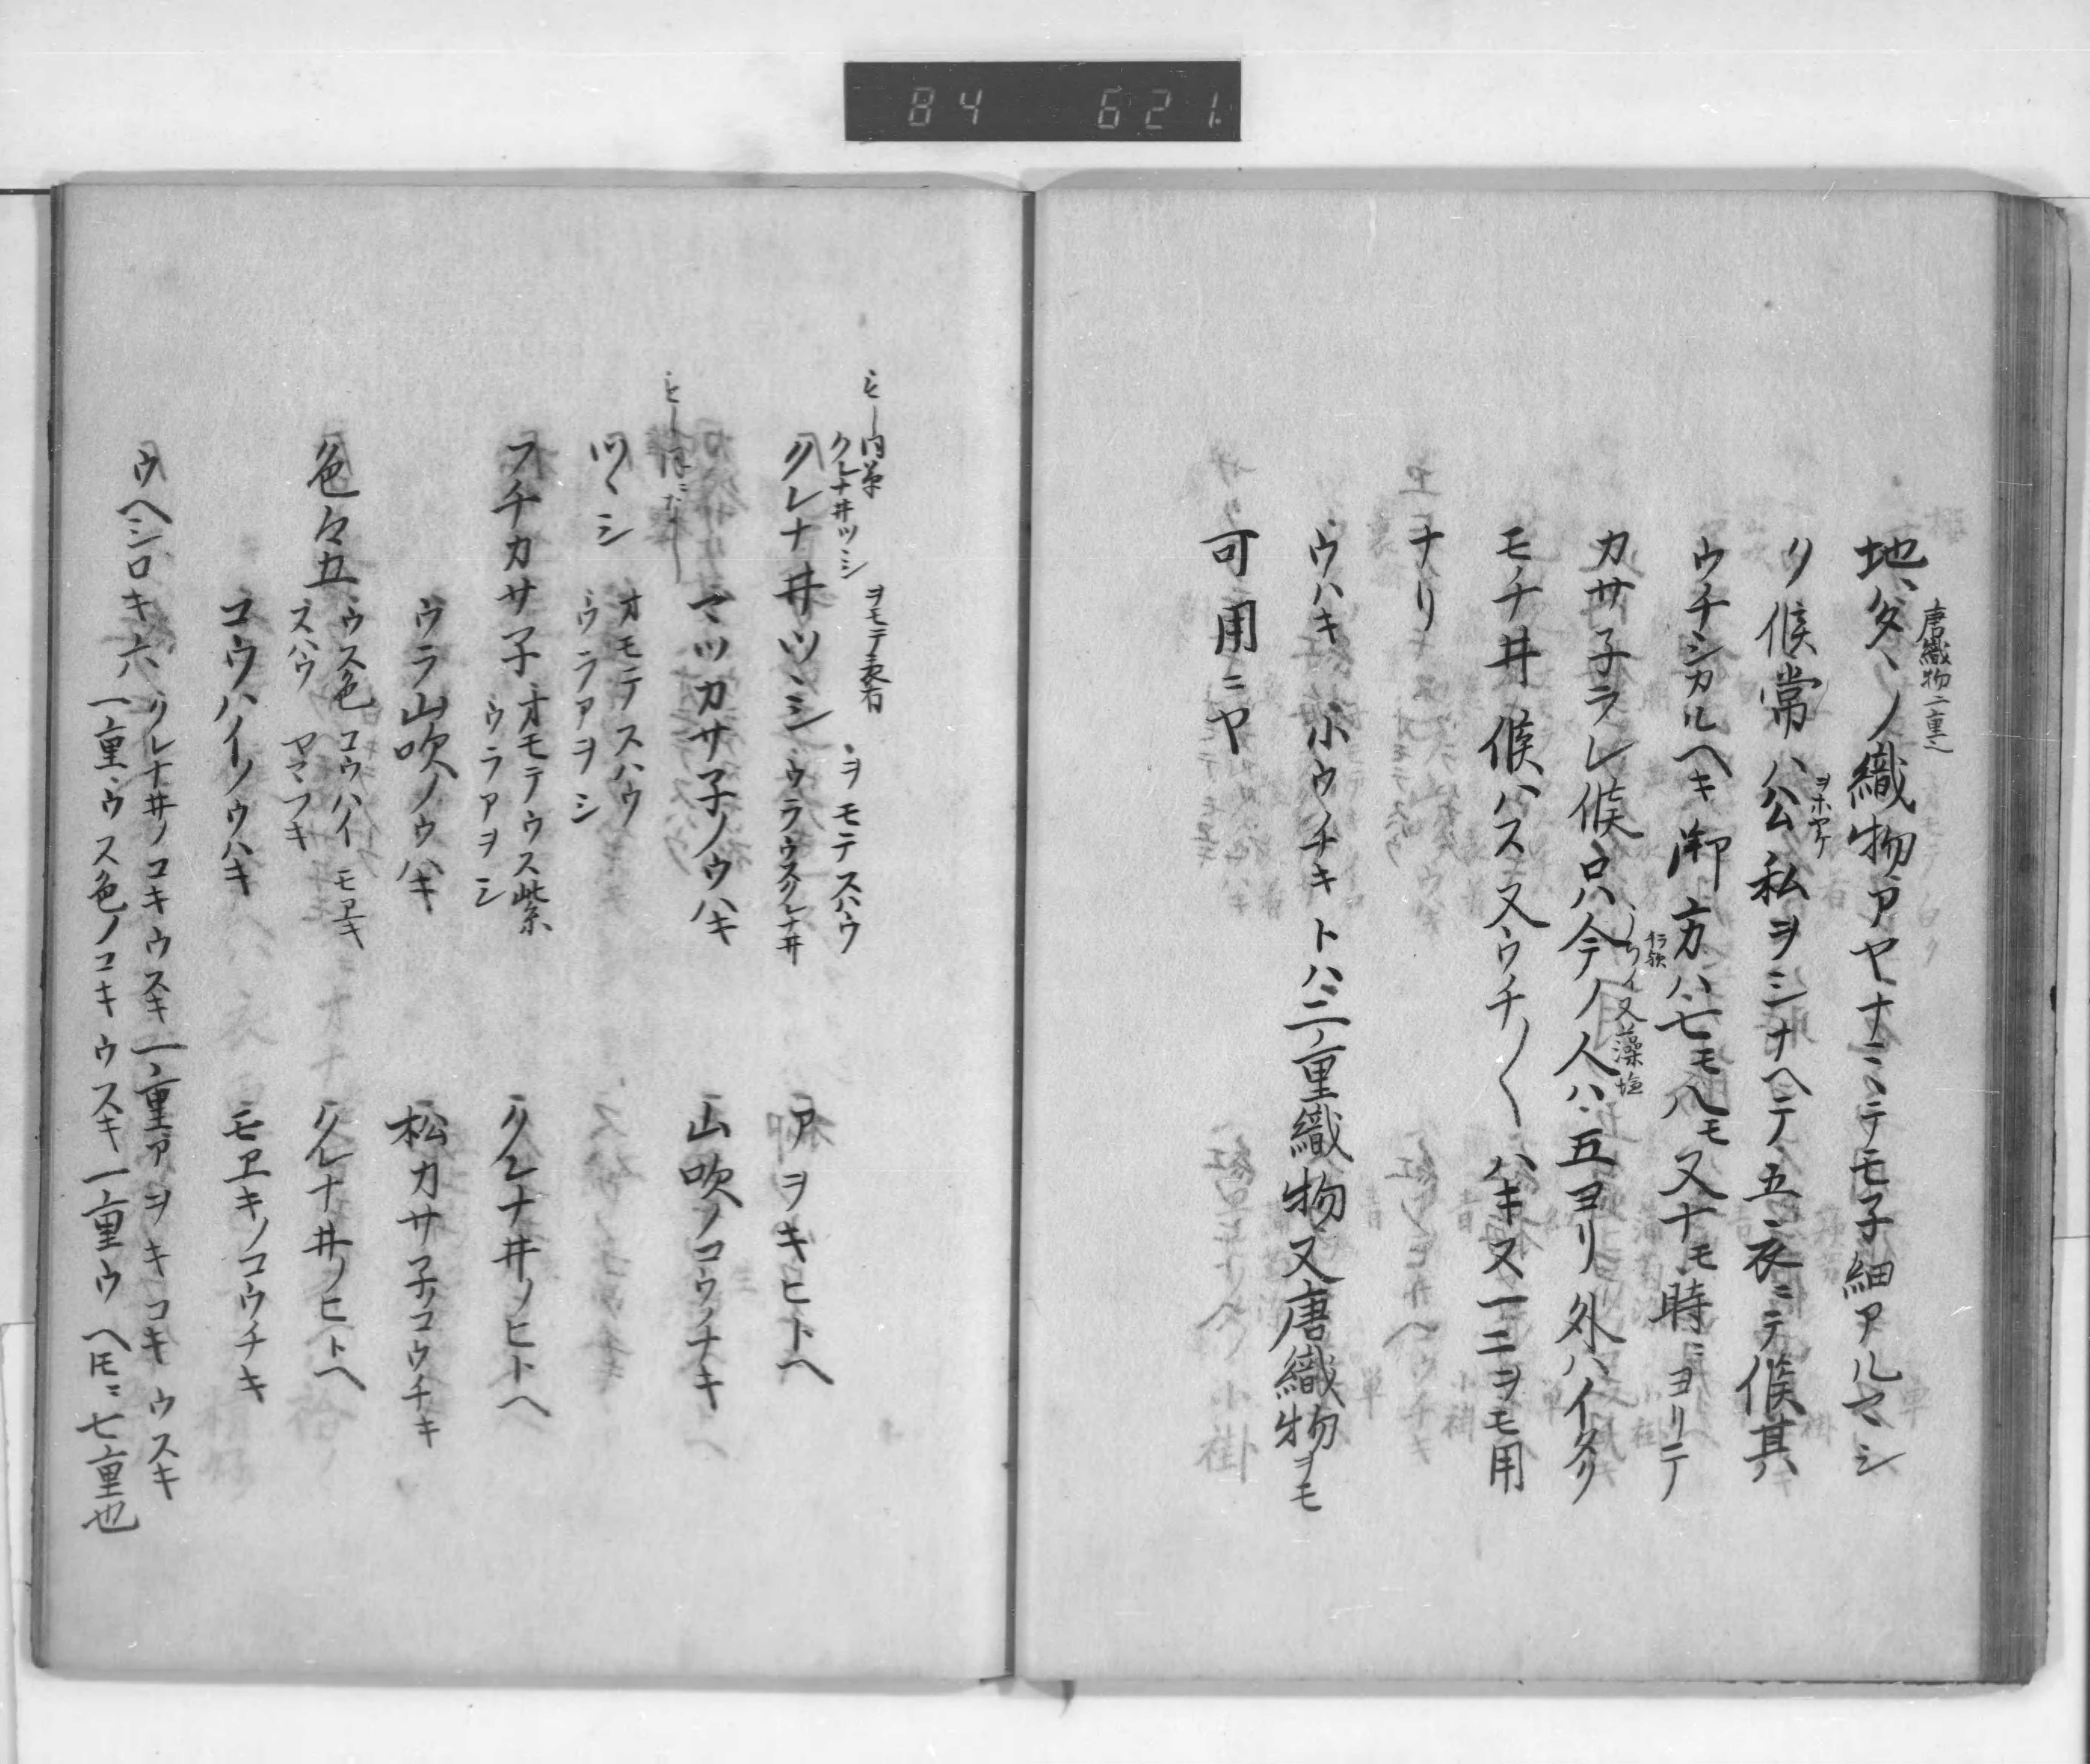 84 621
唐織物二重之
地ハタヽノ織物アヤナニヽテモ子細アルマシ
ク候常ハ公私ヲシナヘテノ五衣ニテ候其
ヲホヤケ
ウチシカルヘキ御方ハ七モ八モ又十モ時ニヨリテ
カサ子ラレ候
今ノ人ハ五ヨリ外ハイタク
モチ井候ハス又ウチ〱ハキ又一二ヲモ用
ナリ
ウハキ小ウチキトハ二重織物又唐織物ヲモ
可用ニヤ
クレナ井ツヽシ
ヲモテ表若
ヲモテスハウ
クレナ井ツヽシ ウラウスクレナ井 アヲキヒトヘ
マツカサ子ノウハキ 山吹ノコウチキ
ツヽシ オモテスハウ
ウラアヲシ
フチカサ子 オモテウス紫
ウラアヲシ クレナ井ノヒトヘ
ウラ山吹ノウハキ 松カサ子ノコウチキ
色々五 ウス色 コウハイ モヱキ
スハウ ヤマフキ クレナ井ノヒトヘ
コウハイノウハキ モヱキノコウチキ
ウヘシロキ六 クレナ井ノコキウスキ一重アヲキコキウスキ
一重ウス色ノコキウスキ一重ウヘトモニ七重也